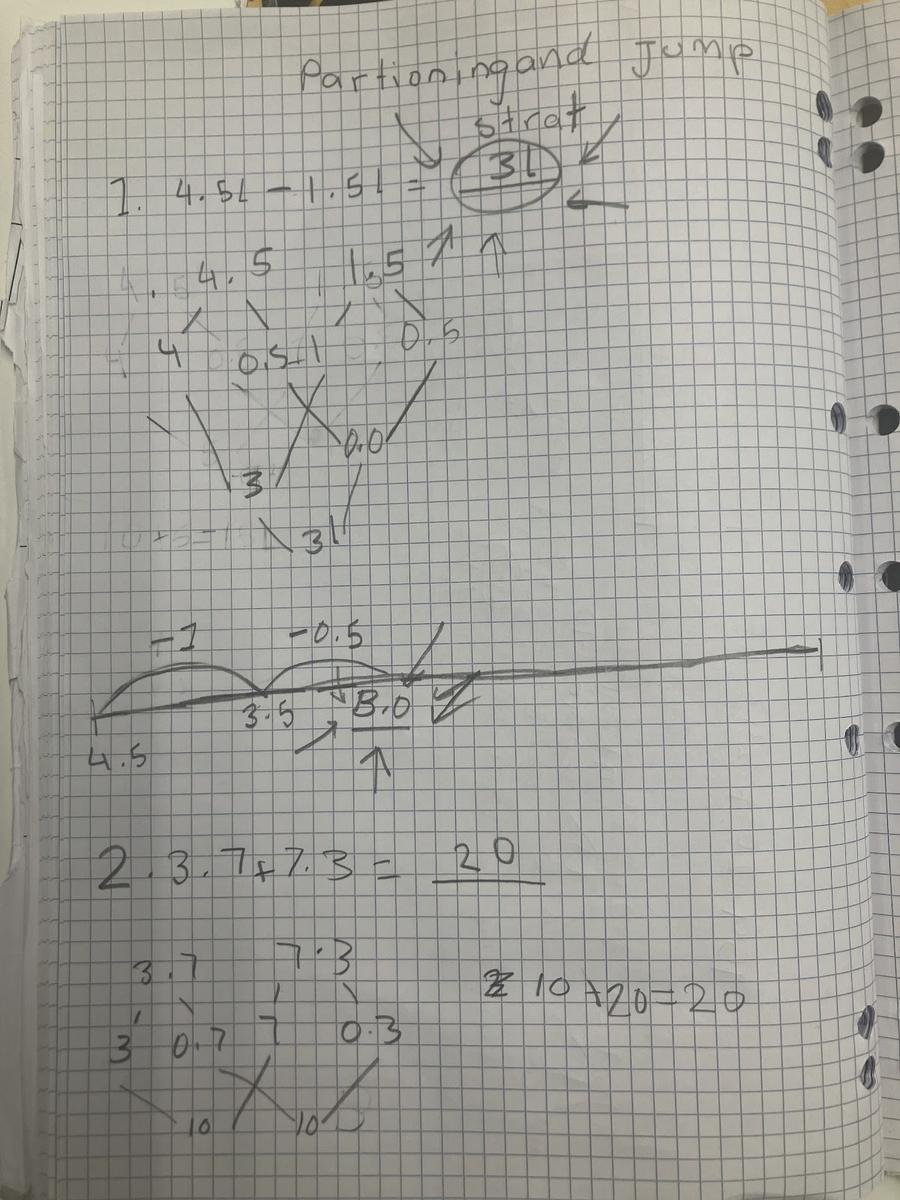 Partioning and Jump
strat
1. 4.5l - 1.5l = 3l
4.5 1.5
4 0.5 1 0.5
0.0
3
3l
-1 -0.5
3.5 3.0
4.5
2. 3.7 + 7.3 = 20
3.7 7.3
10 + 20 = 20
3 0.7 7 0.3
10 10